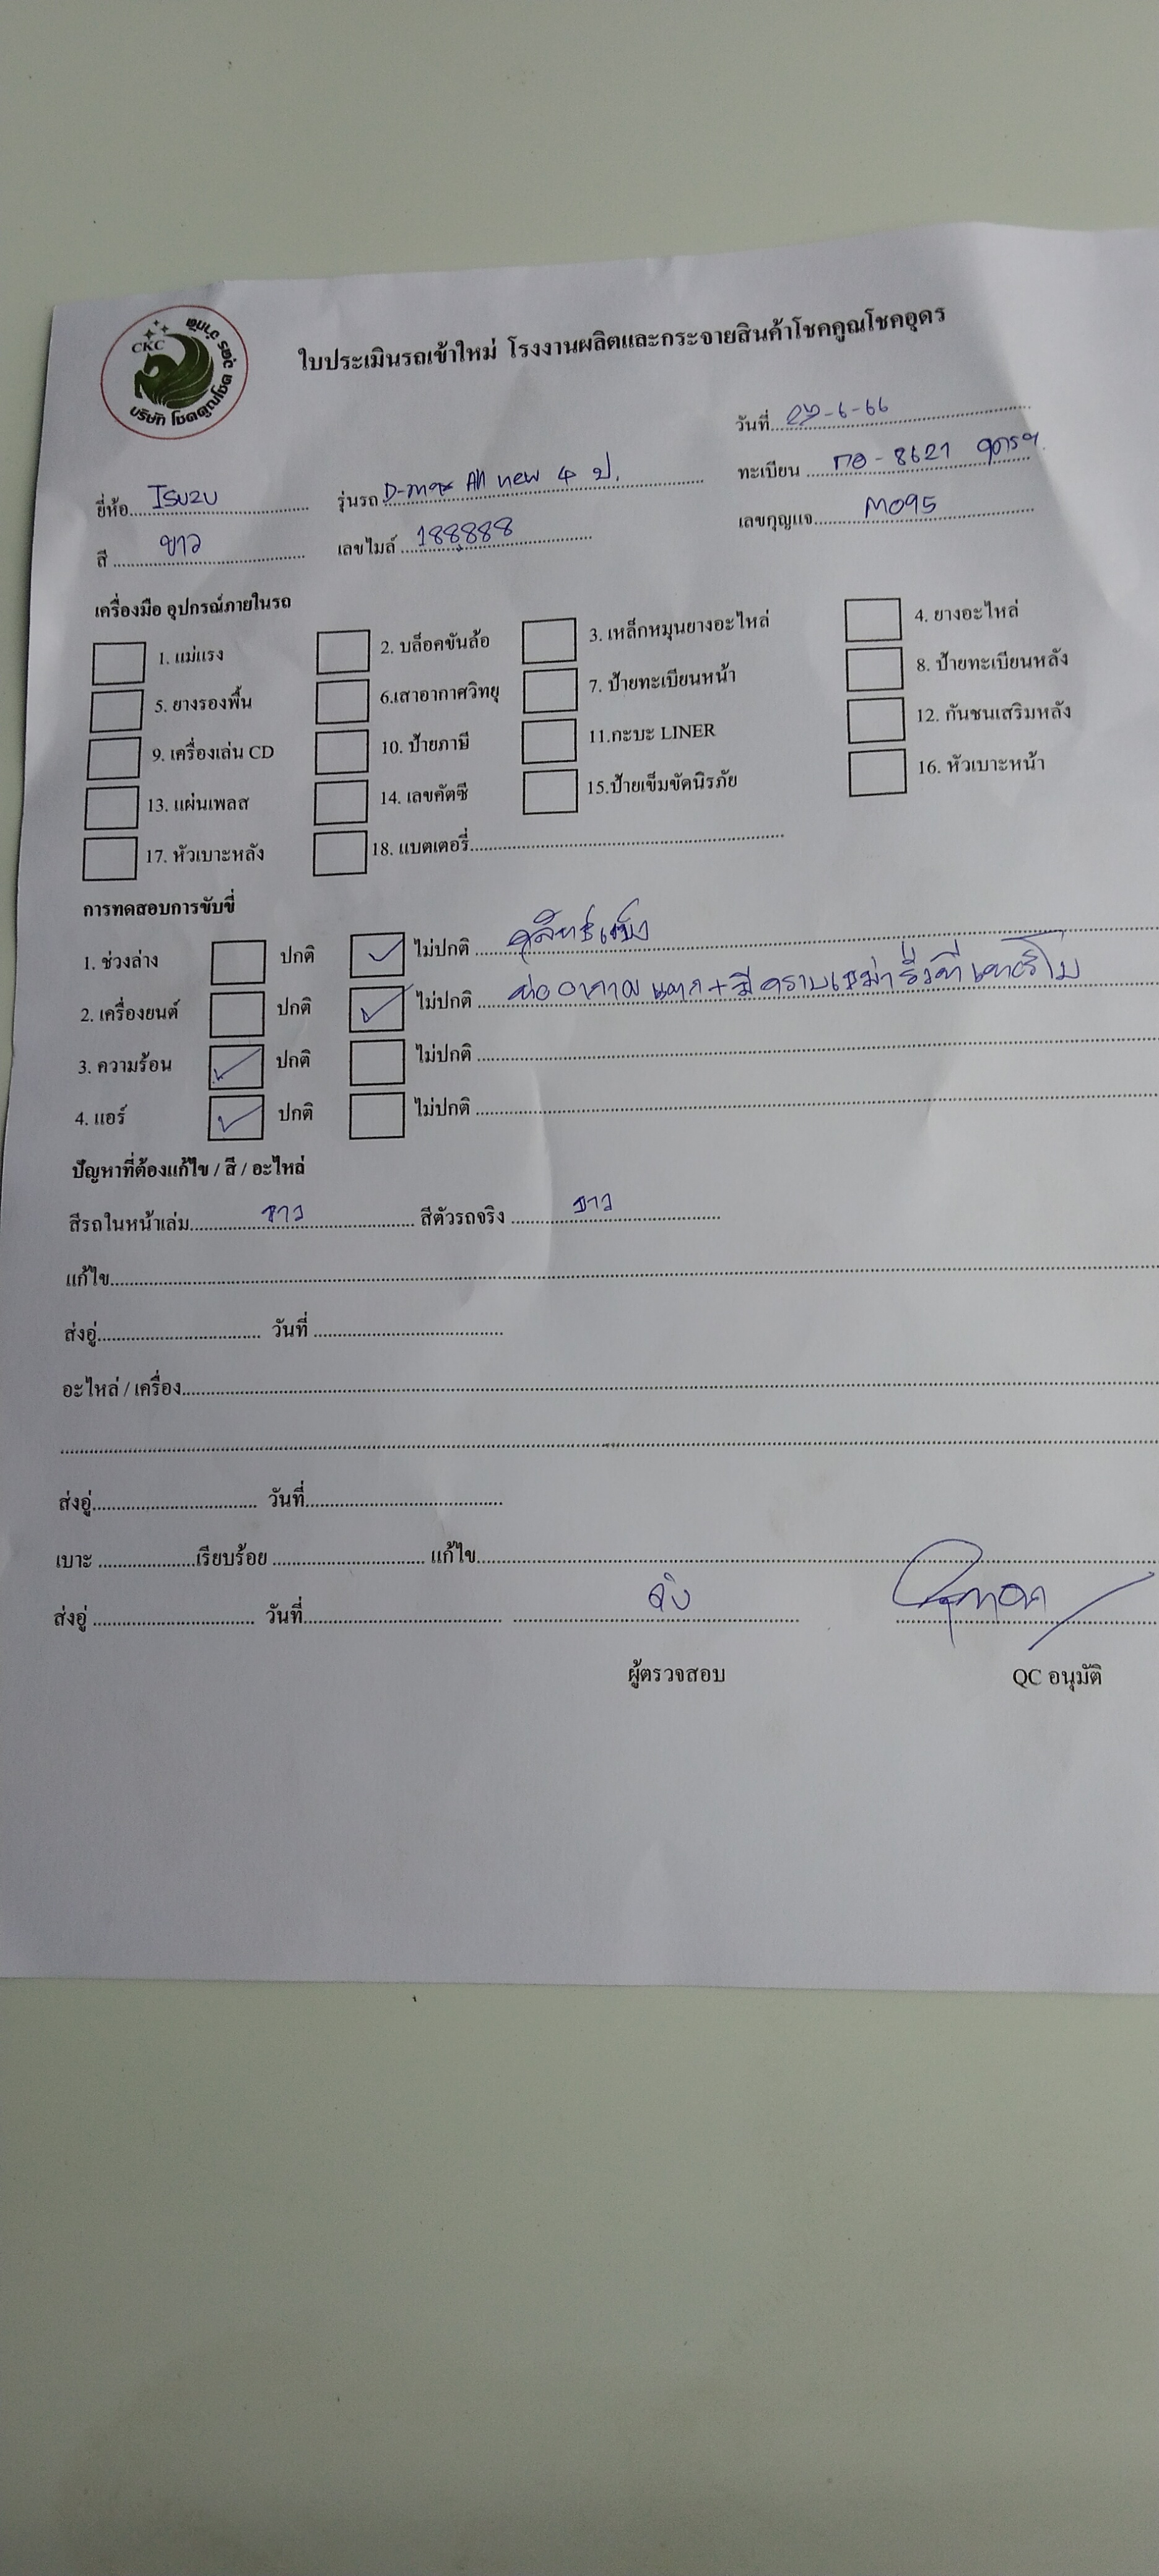 CKC
บริษัท โชคคูณโชค อุดร จำกัด
ใบประเมินรถเข้าใหม่ โรงงานผลิตและกระจายสินค้าโชคคูณโชคอุดร
วันที่ -6-66
ยี่ห้อ ISUZU รุ่นรถ D-max All new 4 ป. ทะเบียน 8621 อุดรฯ
สี ขาว เลขไมล์ 188888 เลขกุญแจ M095
เครื่องมือ อุปกรณ์ภายในรถ
1. แม่แรง 2. บล็อคขันล้อ 3. เหล็กหมุนยางอะไหล่ 4. ยางอะไหล่
5. ยางรองพื้น 6.เสาอากาศวิทยุ 7. ป้ายทะเบียนหน้า 8. ป้ายทะเบียนหลัง
9. เครื่องเล่น CD 10. ป้ายภาษี 11.กะบะ LINER 12. กันชนเสริมหลัง
13. แผ่นเพลส 14. เลขคัตซี 15.ป้ายเข็มขัดนิรภัย 16. หัวเบาะหน้า
17. หัวเบาะหลัง 18. แบตเตอรี่
การทดสอบการขับขี่
1. ช่วงล่าง ปกติ ไม่ปกติ
2. เครื่องยนต์ ปกติ ไม่ปกติ ท่ออากาศ แตก + มีคราบเขม่ารั่วที่เทอร์โบ
3. ความร้อน ปกติ ไม่ปกติ
4. แอร์ ปกติ ไม่ปกติ
ปัญหาที่ต้องแก้ไข / สี / อะไหล่
สีรถในหน้าเล่ม ขาว สีตัวรถจริง ขาว
แก้ไข
ส่งอู่ วันที่
อะไหล่ / เครื่อง
ส่งอู่ วันที่
เบาะ เรียบร้อย แก้ไข
ส่งอู่ วันที่
ผู้ตรวจสอบ QC อนุมัติ